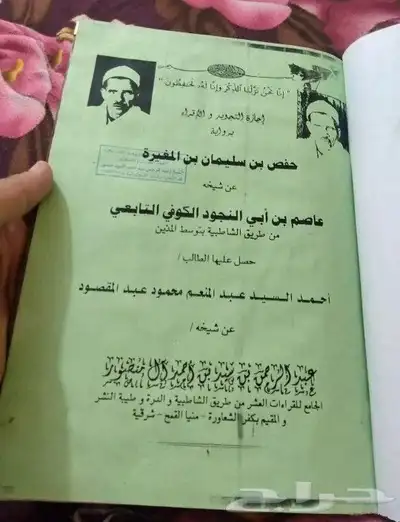 " إنا نحن نزلنا الذكر وإنا له لحفظون "
إجازة التجويد و الإقراء
برواية
حفص بن سليمان بن المغيرة
عن شيخه
عاصم بن أبي النجود الكوفي التابعي
من طريق الشاطبية بتوسط المدين
حصل عليها الطالب /
أحمد السيد عبد المنعم محمود عبد المقصود
عن شيخه /
عبد الرحمن بن سيد بن أحمد آل منصور
الجامع للقراءات العشر من طريق الشاطبية و الدرة و طيبة النشر
و المقيم بكفر الشعاورة - منيا القمح - شرقية
١
حراج